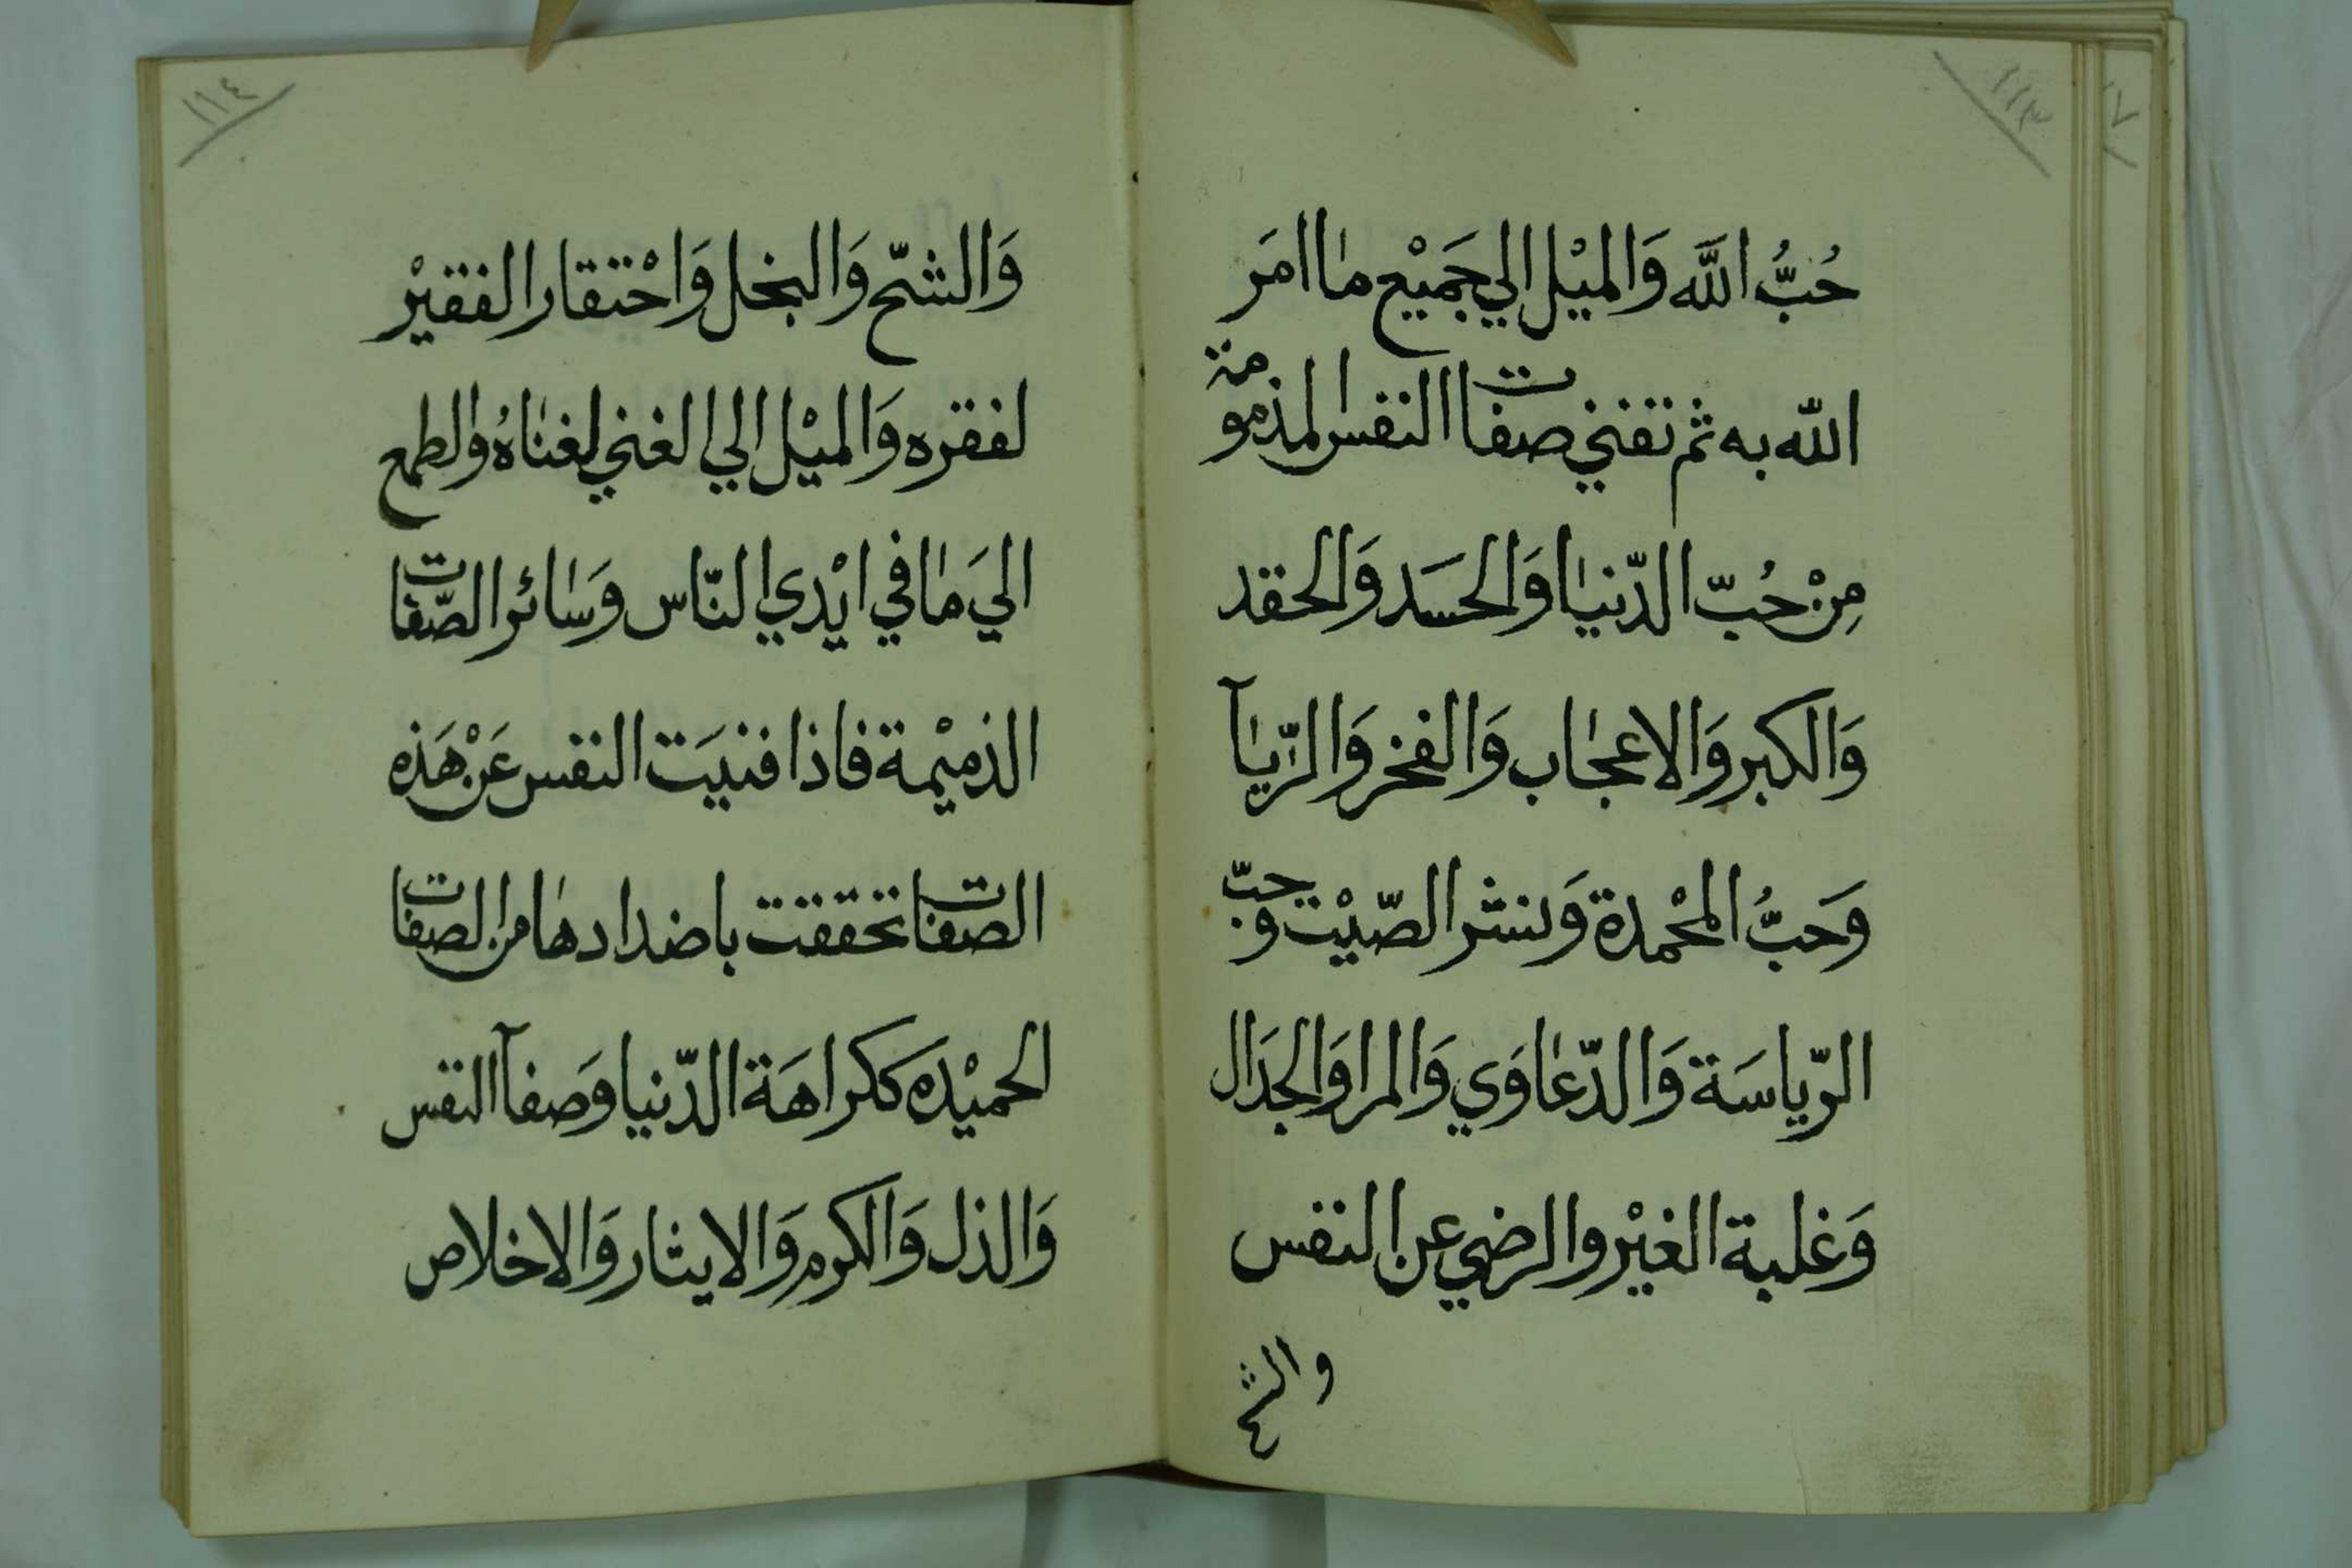 ١١٣
حُبُّ اللَّه وَالميْل الي جَمَيْع ماا امَر
اللّه به ثم تفني صفات النفس المذمومة
مِنْ حُبّ الدّنيا وَالحسَد وَالحقد
وَالكبر وَالاعجاب وَالفخر وَالرّيآ
وَحبُّ المحْمدة وَنشر الصّيْت وحبّ
الرّياسَة وَالدّعاوَي وَالمرا وَالجدَال
وَغلبة الغيْر والرضي عن النفس
والشح
١١٤
وَالشحّ وَالبخل وَاحْتقار الفقيْر
لفقره وَالميْل الي الغني لغناهُ والطمع
اليَ مَا في ايْدي النّاس وَسائر الصّفات
الذميْمة فاذا فنيَت النفس عَنْ هَذه
الصفات تحققت باضدادها من الصفات
الحميْده ككراهَة الدّنيا وَصفآ النفس
وَالذل وَالكرم وَالايثار وَالاخلاص